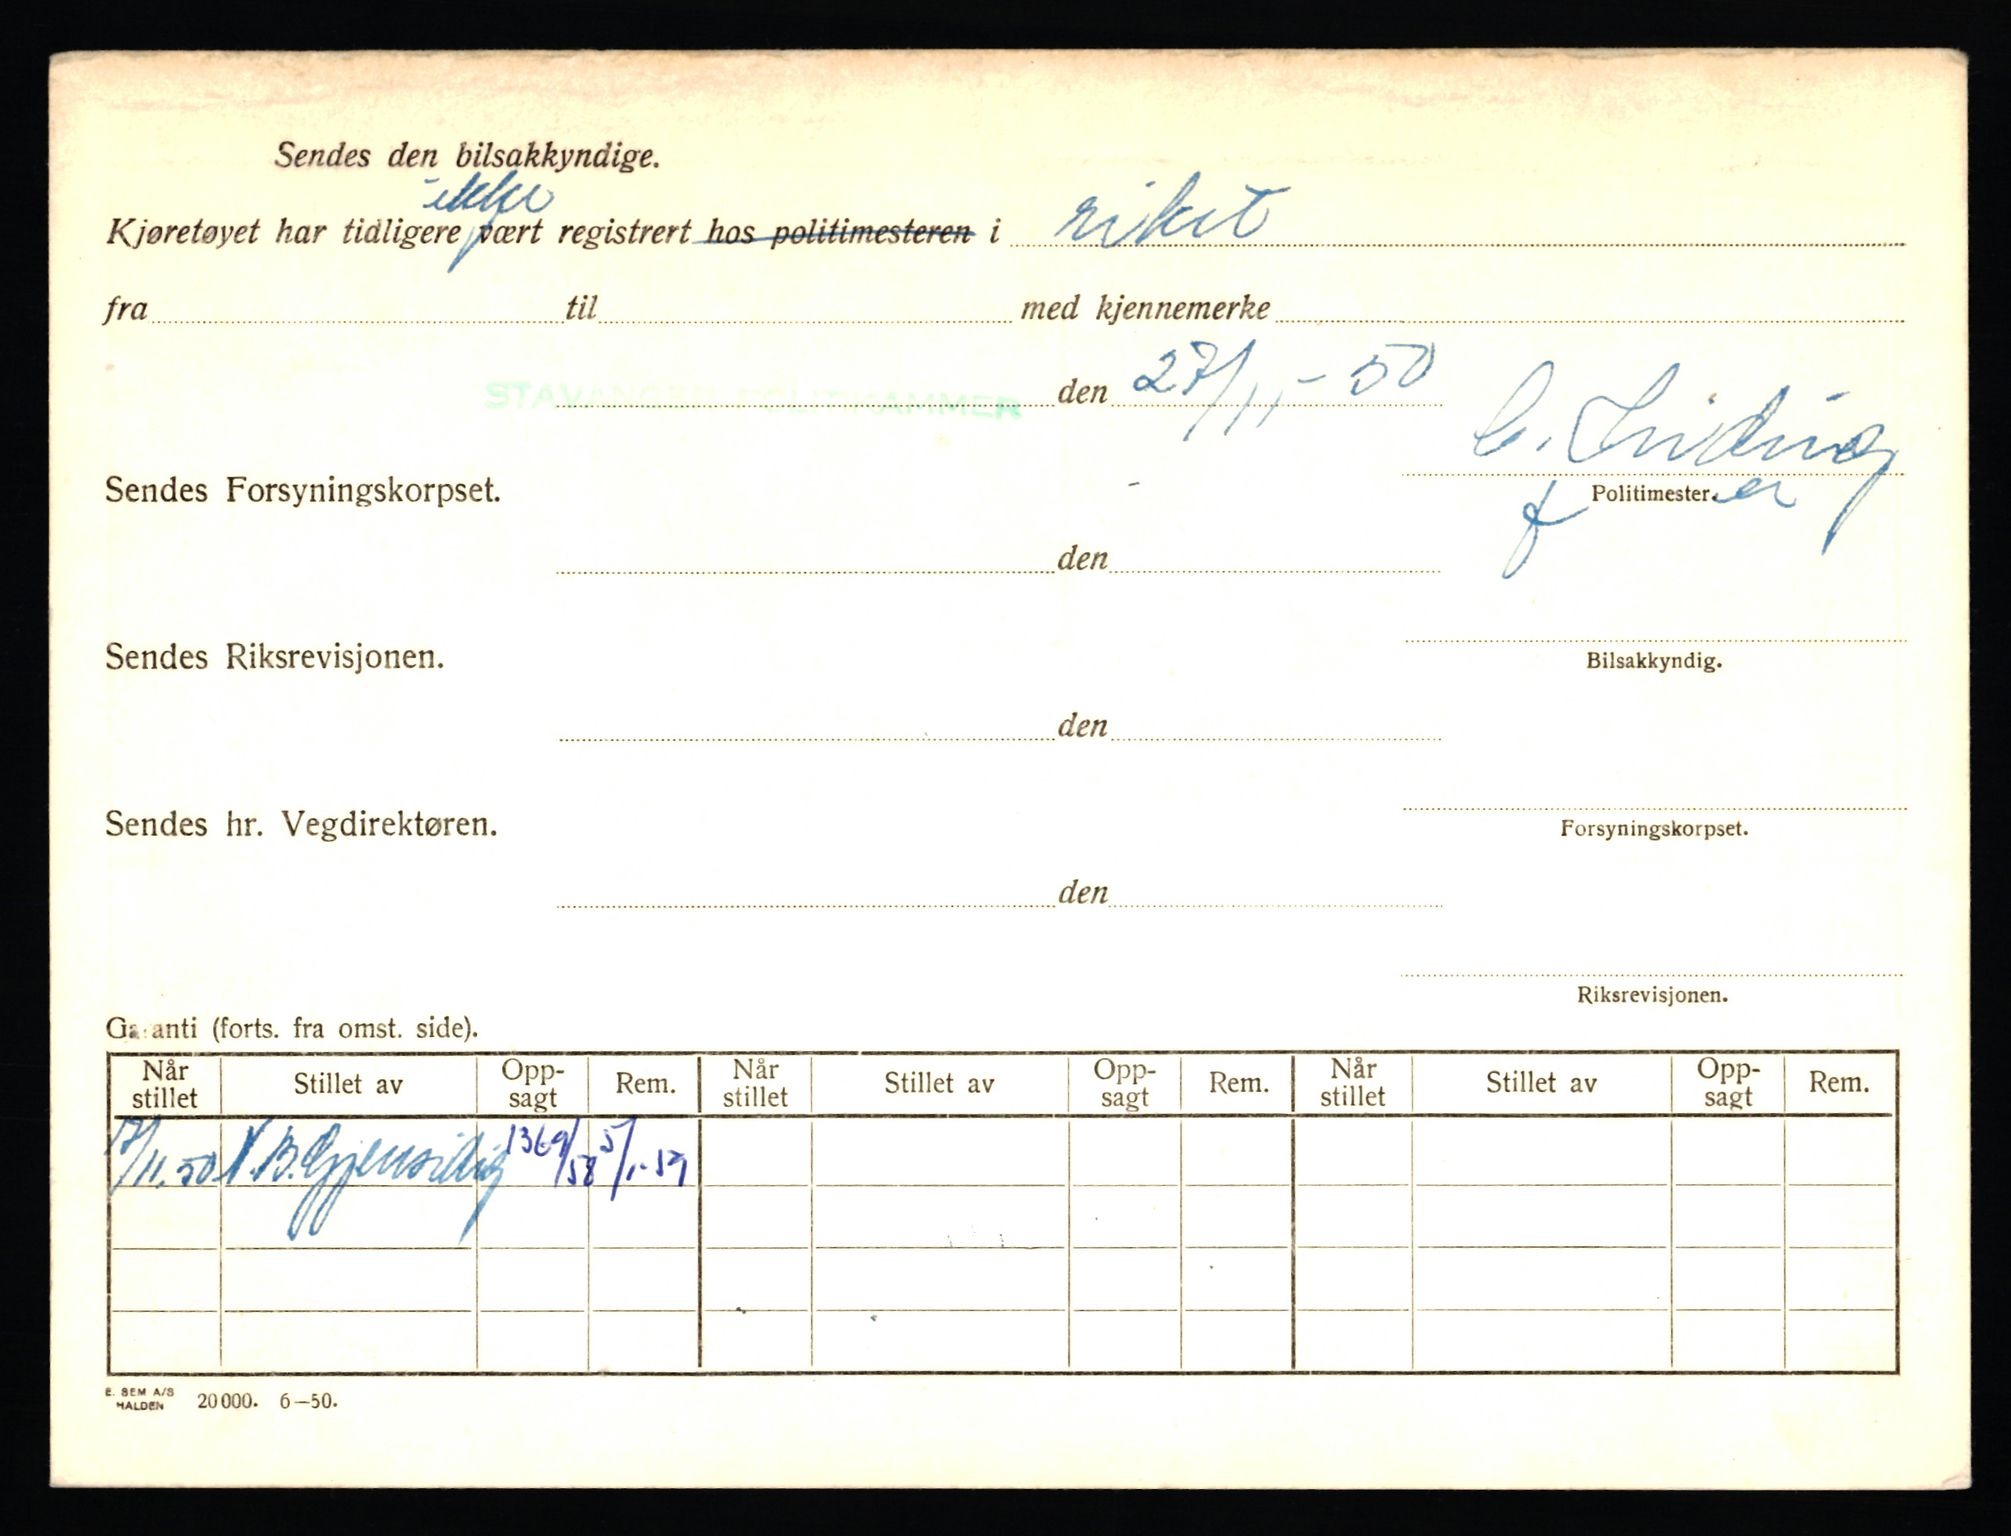 Sendes den bilsakkyndige.
ikke
Kjøretøyet har tidligere vært registrert hos politimesteren i riket
fra til med kjennemerke
STAVANGER POLITIKAMMER den 27/11-50
Sendes Forsyningskorpset.
Politimester.
den
Sendes Riksrevisjonen.
Bilsakkyndig.
den
Sendes hr. Vegdirektøren.
Forsyningskorpset.
den
Riksrevisjonen.
Garanti (forts. fra omst. side).
Når stillet Stillet av Opp-sagt Rem. Når stillet Stillet av Opp-sagt Rem. Når stillet Stillet av Opp-sagt Rem.
17/11.50 N.B. Gjensidig 1369/58 5/1-59
E. SEM A/S
HALDEN 20000. 6—50.